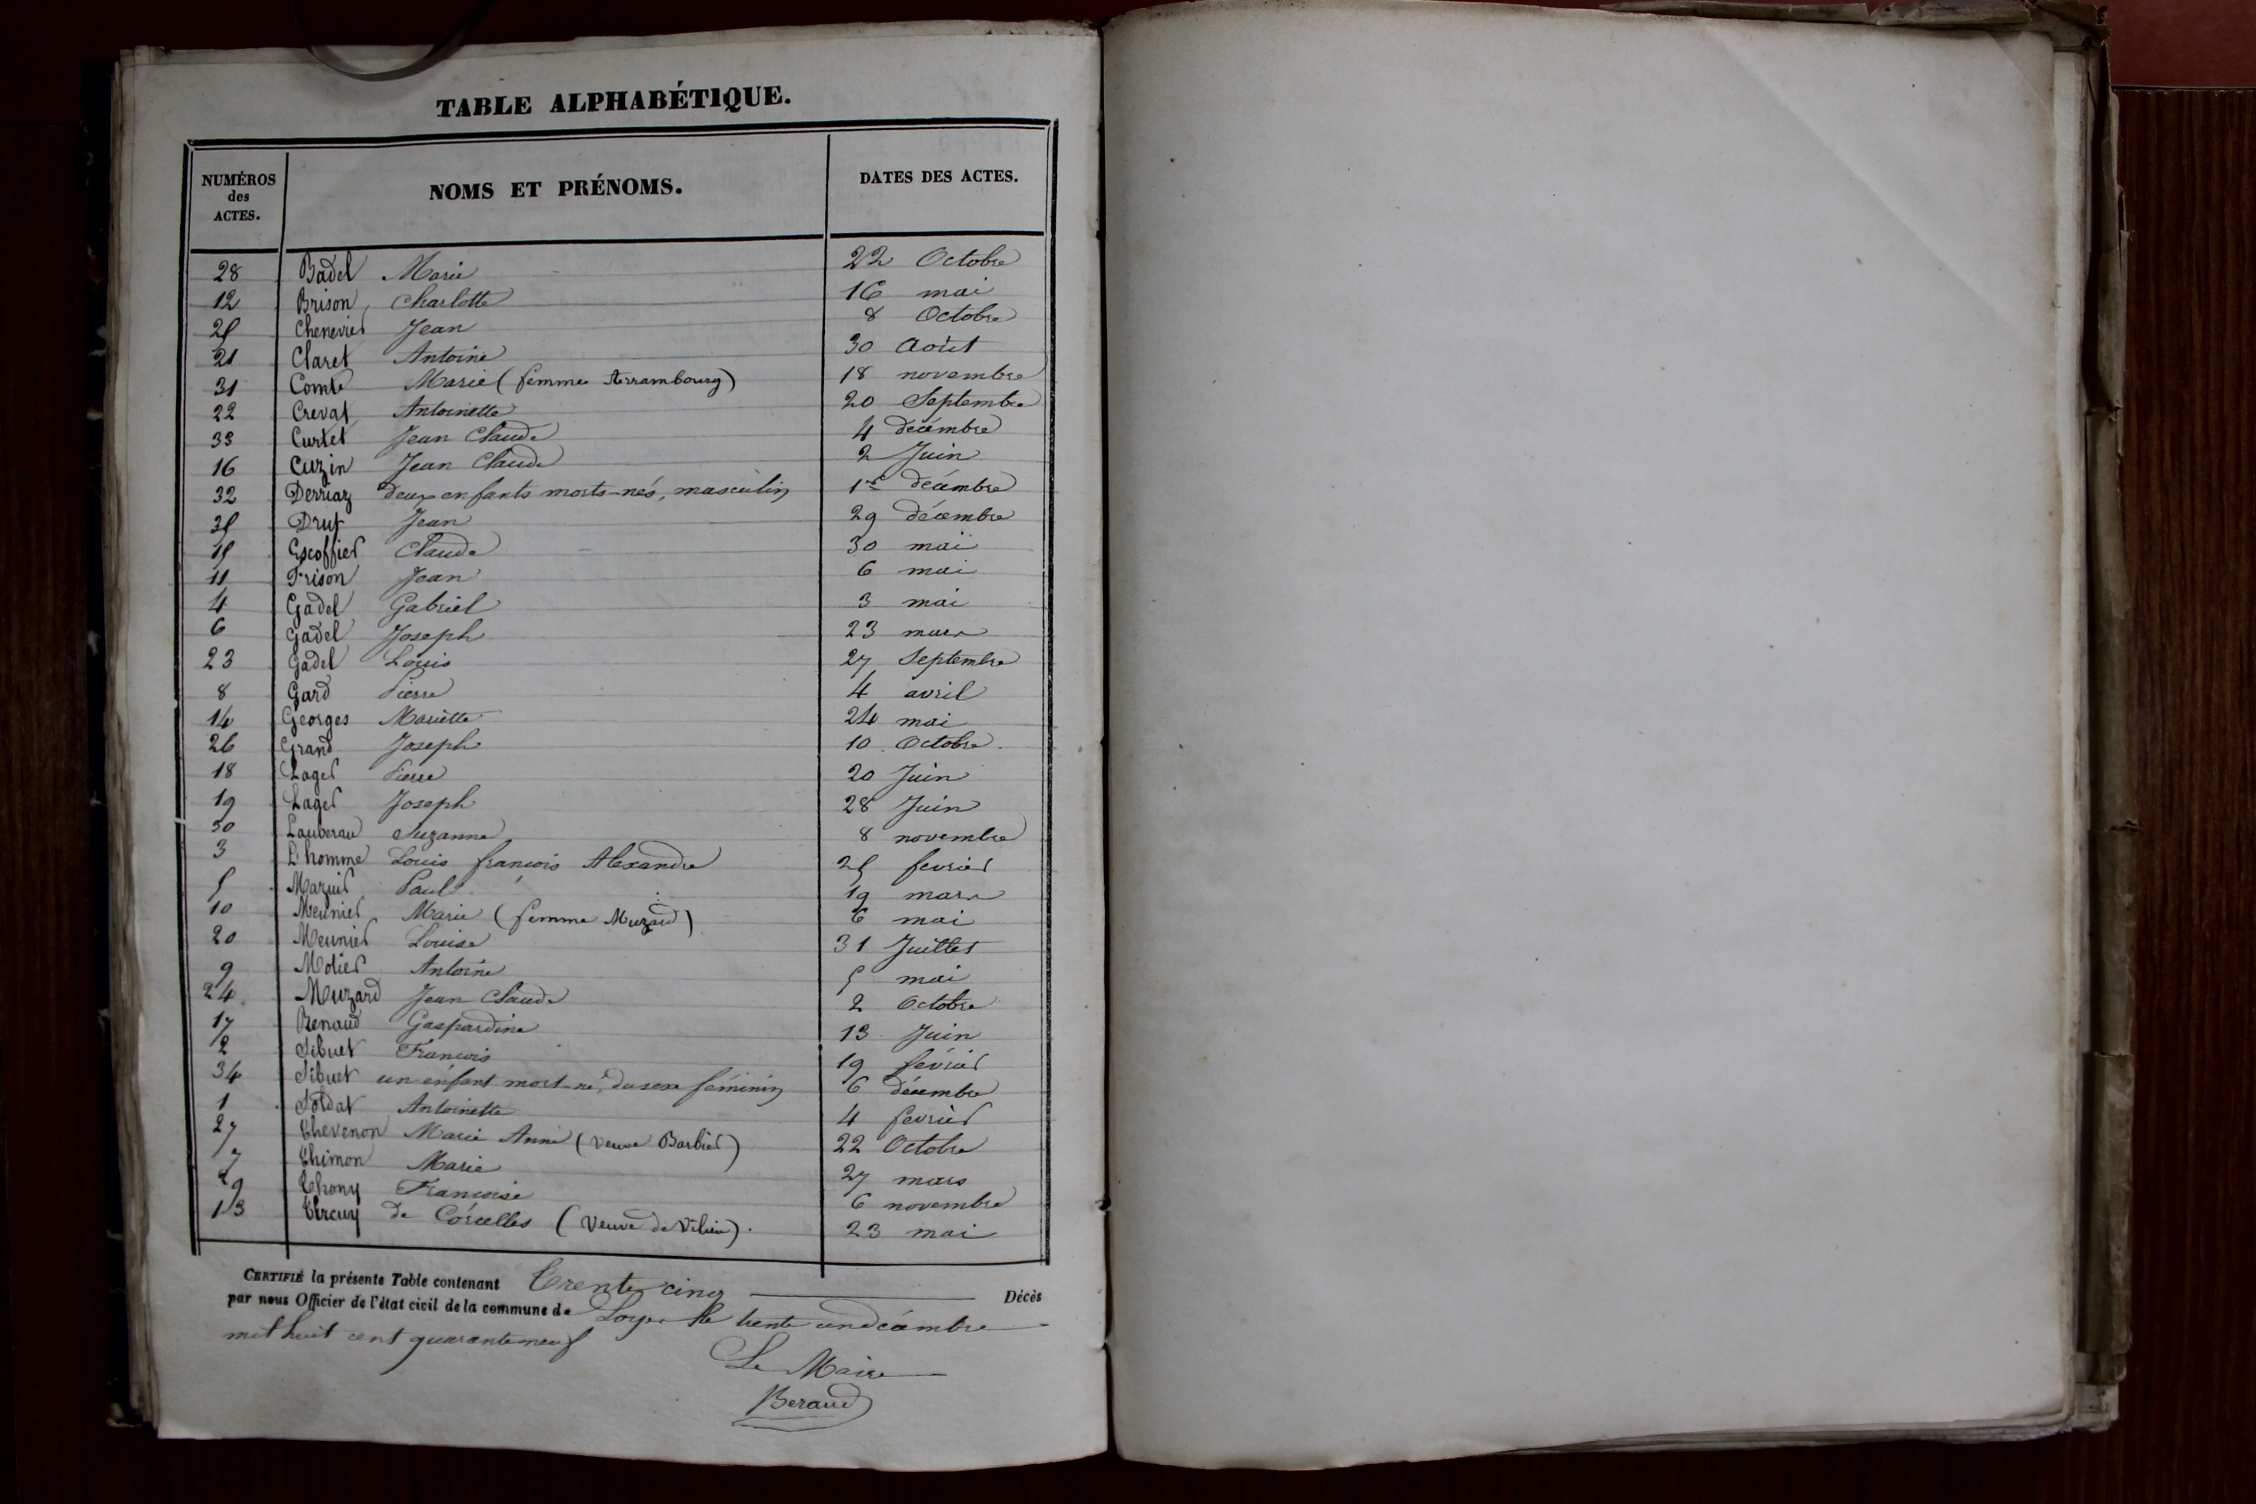 TABLE ALPHABÉTIQUE.
NUMÉROS des ACTES. NOMS ET PRÉNOMS. DATES DES ACTES.
28 Badel Marie 22 Octobre
12 Brison Charlotte 16 mai
25 Chenevier Jean 8 Octobre
21 Claret Antoine 30 Août
31 Comte Marie (femme Arrambourg) 18 novembre
22 Crevat Antoinette 20 Septembre
33 Curtet Jean Claude 4 décembre
16 Cuzin Jean Claude 2 Juin
32 Derriaz deux enfants morts-nés, masculin 1er décembre
35 Drut Jean 29 décembre
15 Escoffier Claude 30 mai
11 Frison Jean 6 mai
4 Gadel Gabriel 3 mai
6 Gadel Joseph 23 mars
23 Gadel Louis 27 Septembre
8 Gard Pierre 4 avril
14 Georges Mariette 24 mai
26 Grand Joseph 10 Octobre
18 Lager Pierre 20 Juin
19 Lager Joseph 28 Juin
30 Laubérau Suzanne 8 novembre
3 Lhomme Louis françois Alexandre 25 fevrier
5 Mazuir Paul 19 mars
10 Meunier Marie (femme Muzard) 6 mai
20 Meunier Louise 31 Juillet
9 Motier Antoine 5 mai
24 Muzard Jean Claude 2 Octobre
17 Renaud Gaspardine 13 Juin
2 Sibuet François 19 fevrier
34 Sibuet un enfant mort-né, du sexe féminin 6 décembre
1 Soldat Antoinette 4 fevrier
27 Thevenon Marie Anne (veuve Barbier) 22 Octobre
7 Thimon Marie 27 mars
29 Thony Françoise 6 novembre
13 Tircuy de Corcelles (Veuve de Vilieu). 23 mai
CERTIFIÉ la présente Table contenant Trente cinq Décès
par nous Officier de l'état civil de la commune de Loyes le trente un décembre
mil huit cent quarante neuf
Le Maire
Beraud